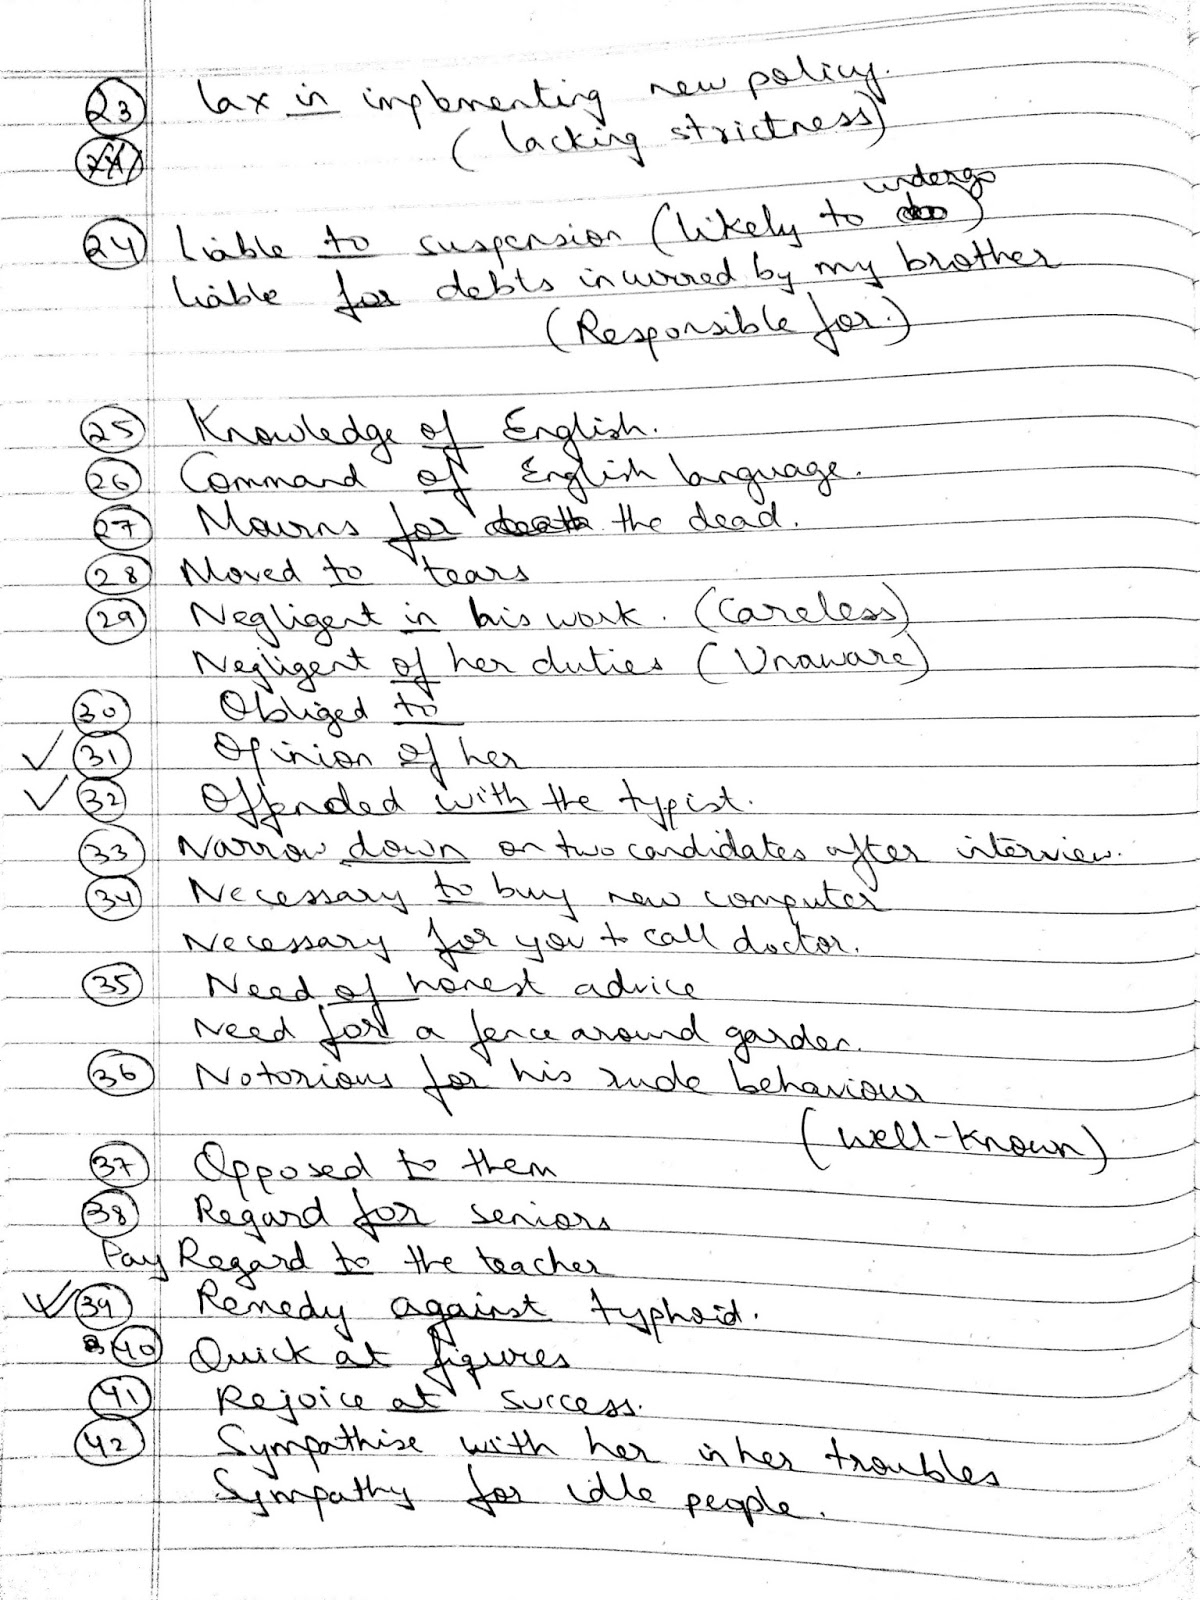 23 Lax in implementing new policy.
(lacking strictness)
24 Liable to suspension (likely to undergo)
Liable for debts incurred by my brother
(Responsible for.)
25 Knowledge of English.
26 Command of English language.
27 Mourns for the dead.
28 Moved to tears
29 Negligent in his work. (Careless)
Negligent of her duties (Unaware)
30 Obliged to
✓ 31 Opinion of her
✓ 32 Offended with the typist.
33 Narrow down on two candidates after interview.
34 Necessary to buy new computer
Necessary for you to call doctor.
35 Need of honest advice
Need for a fence around garden.
36 Notorious for his rude behaviour
(well-known)
37 Opposed to them
38 Regard for seniors
Pay Regard to the teacher
✓ 39 Remedy against typhoid.
40 Quick at figures
41 Rejoice at success.
42 Sympathise with her in her troubles
Sympathy for idle people.